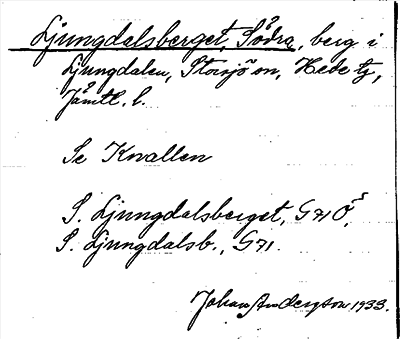 Ljungdalsberget, Södra, berg i
Ljungdalen, Storsjö sn, Hede tg,
Jämtl. l.
Se Knallen
S. Ljungdalsberget, G71 Ö,
S. Ljungdalsb., G71.
Johan Anderzson 1933.